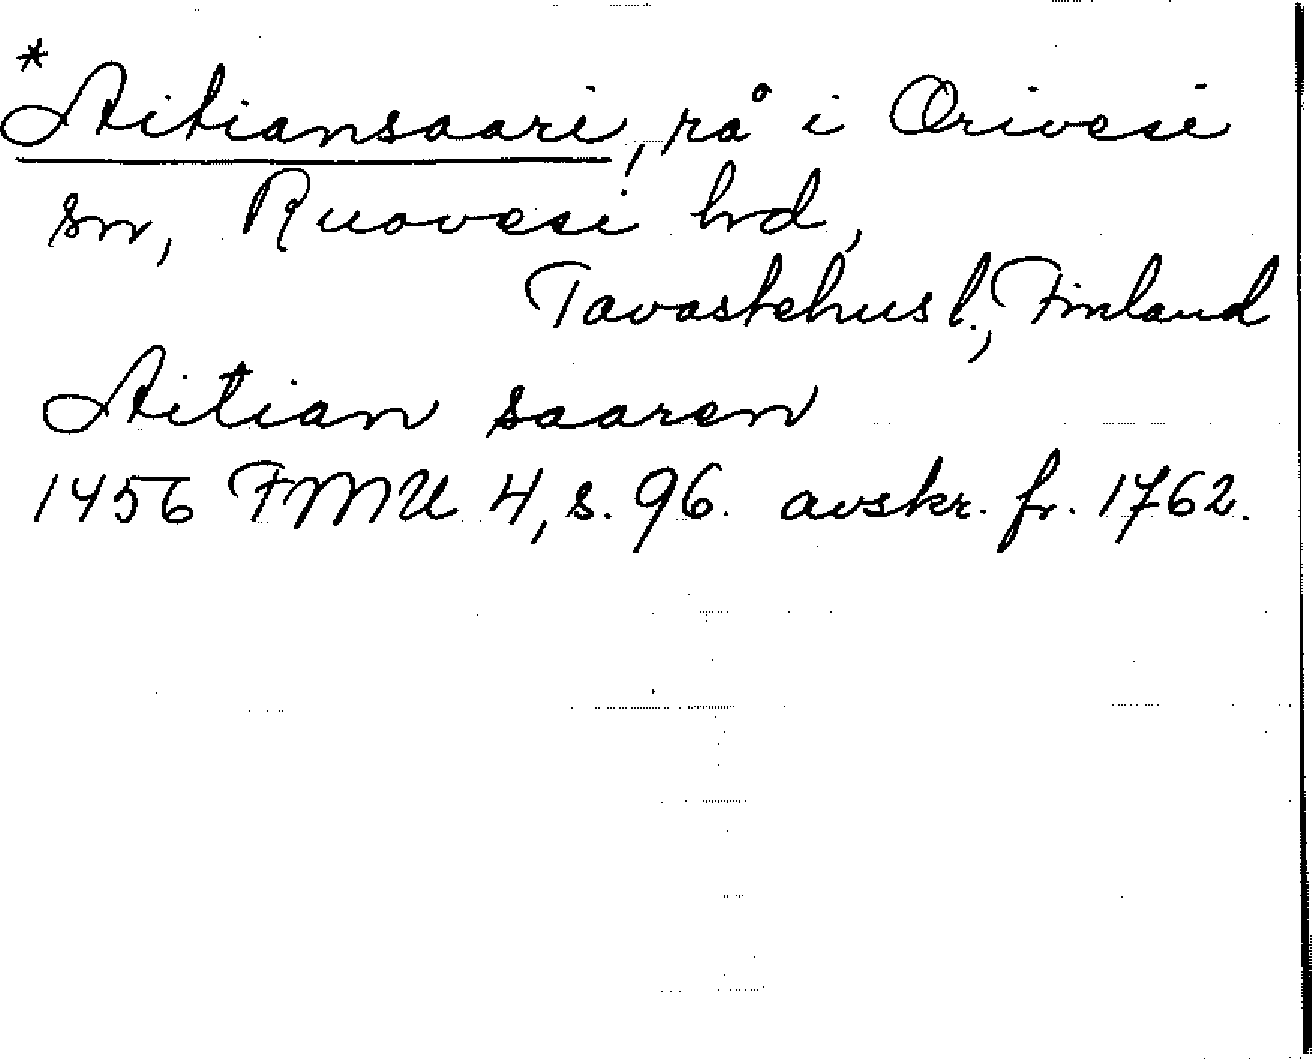 *Aitiansaari, rå i Orivesi
sn, Ruovesi hd,
Tavastehus l., Finland
Aitian saaren
1456 FMU 4, s. 96. avskr. fr. 1762.